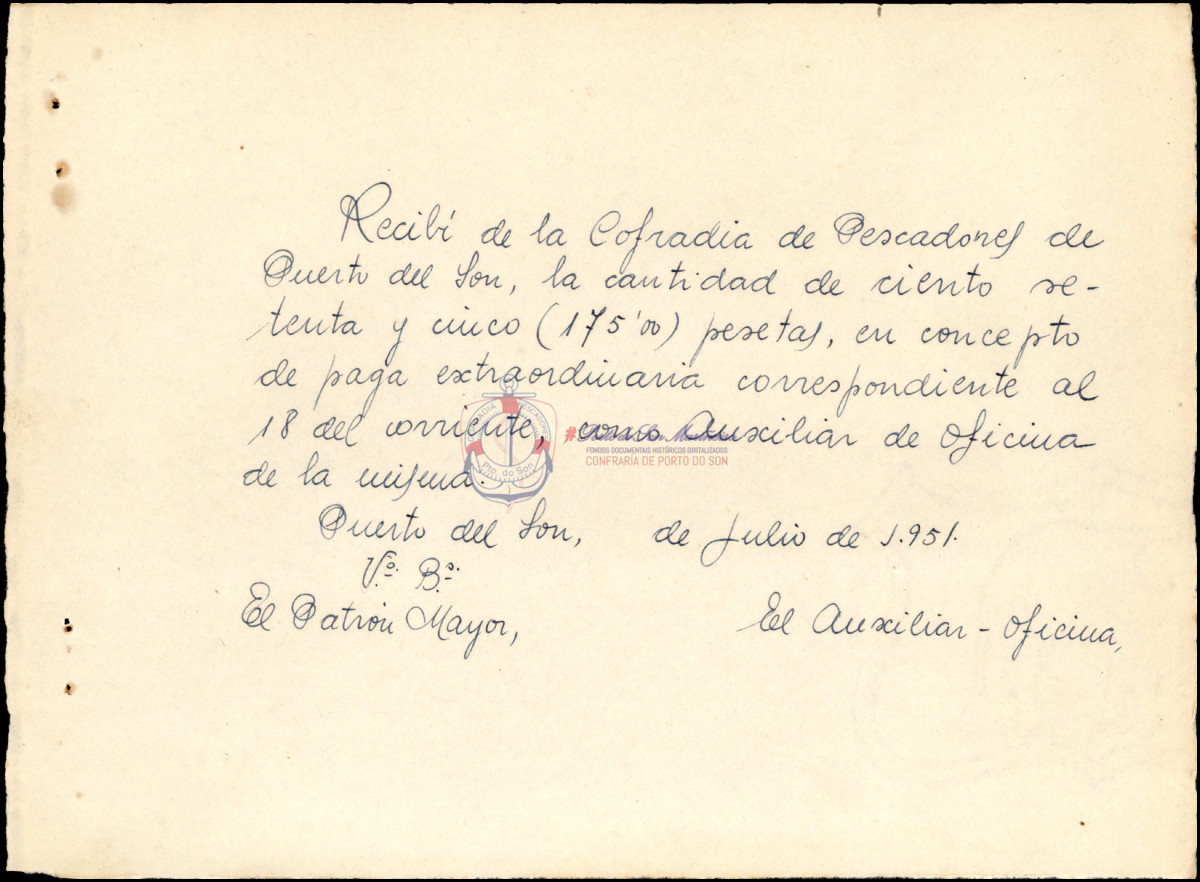 Recibí de la Cofradia de Pescadores de
Puerto del Son, la cantidad de ciento se-
tenta y cinco (175'00) pesetas, en concepto
de paga extraordinaria correspondiente al
18 del corriente, como Auxiliar de Oficina
de la misma.
Puerto del Son, de Julio de 1.951.
Vº. Bº.
El Patrón Mayor,
El Auxiliar - Oficina,
PESCADORES
Pto. do Son
FONDOS DOCUMENTAIS HISTÓRICOS DIXITALIZADOS
CONFRARÍA DE PORTO DO SON